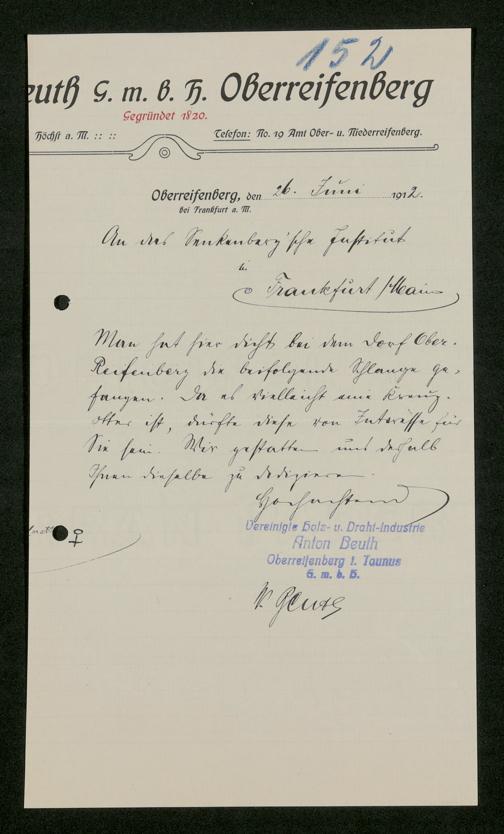 152
euth G. m. b. H. Oberreifenberg
Gegründet 1820.
Höchst a. M. :: :: Telefon: No. 19 Amt Ober- u. Niederreifenberg.
Oberreifenberg, den 26. Juni 1912.
bei Frankfurt a. M.
An das Senkenberg'sche Institut
in
Frankfurt /Main
Man hat hier dicht bei dem Dorf Ober-
Reifenberg die beifolgende Schlange ge-
fangen. Da es vielleicht eine Kreuz-
otter ist, dürfte diese von Interesse für
Sie sein. Wir gestatten uns deshalb
Ihnen dieselbe zu dedizieren.
Hochachtend
♀
Vereinigte Holz- u. Draht-Industrie
Anton Beuth
Oberreifenberg i. Taunus
G. m. b. H.
Beuth